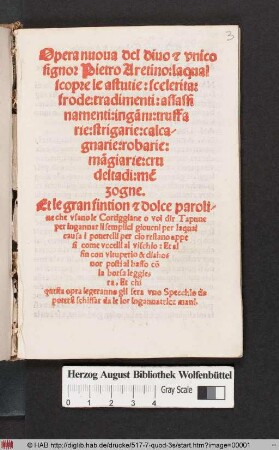 3
Opera nuova del divo & vnico
signor Pietro Aretino: laqual
scopre le astutie: scelerita:
frode: tradimenti: assassi
namenti: ingãni: truffa
rie: strigarie: calca-
gnarie: robarie:
mãgiarie: cru
deltadi: mẽ
zogne.
Et le gran fintion & dolce paroli-
ne che vsano le Cortiggiane o voi dir Tapune
per ingannar li semplici gioueni per laqual
causa i pouerelli per cio restano appe
si come vccelli al vischio: Et al
fin con vituperio & dishos
nor posti al basso cõ
la borsa leggie-
ra. Et chi
questa opra legeranno gli sera vno Specchio da
potersi schiffar da le lor ingannatrice mani.
Herzog August Bibliothek Wolfenbüttel
Gray Scale
© HAB http://diglib.hab.de/drucke/517-7-quod-3s/start.htm?image=00001